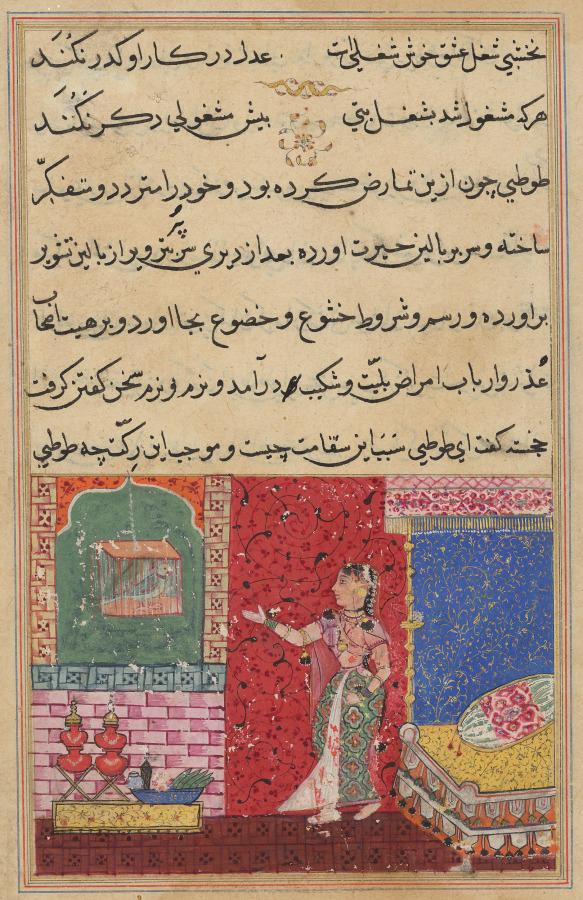 نخشبی شغل عشق خوش شغلی است عدل در کار او گذر نکند
هرکه مشغول شد بشغل بتی بیش مشغولی دکر نکند
طوطی چون ازین تمارض کرده بود و خود را متردد و متفکر
ساخته و سر ببالین حیرت اورده بعد از دیری سر پر از بالین تنویر
براورده و رسم و شروط خشوع و خضوع بجا اورد و بر هیئت اصحاب
عذر و ارباب امراض بلیّت و شکیب درآمد و نرم و نرم سخن کفتن کرفت
خجسته کفت ای طوطی سبب این سقامت چیست و موجب این رکّت چه طوطی